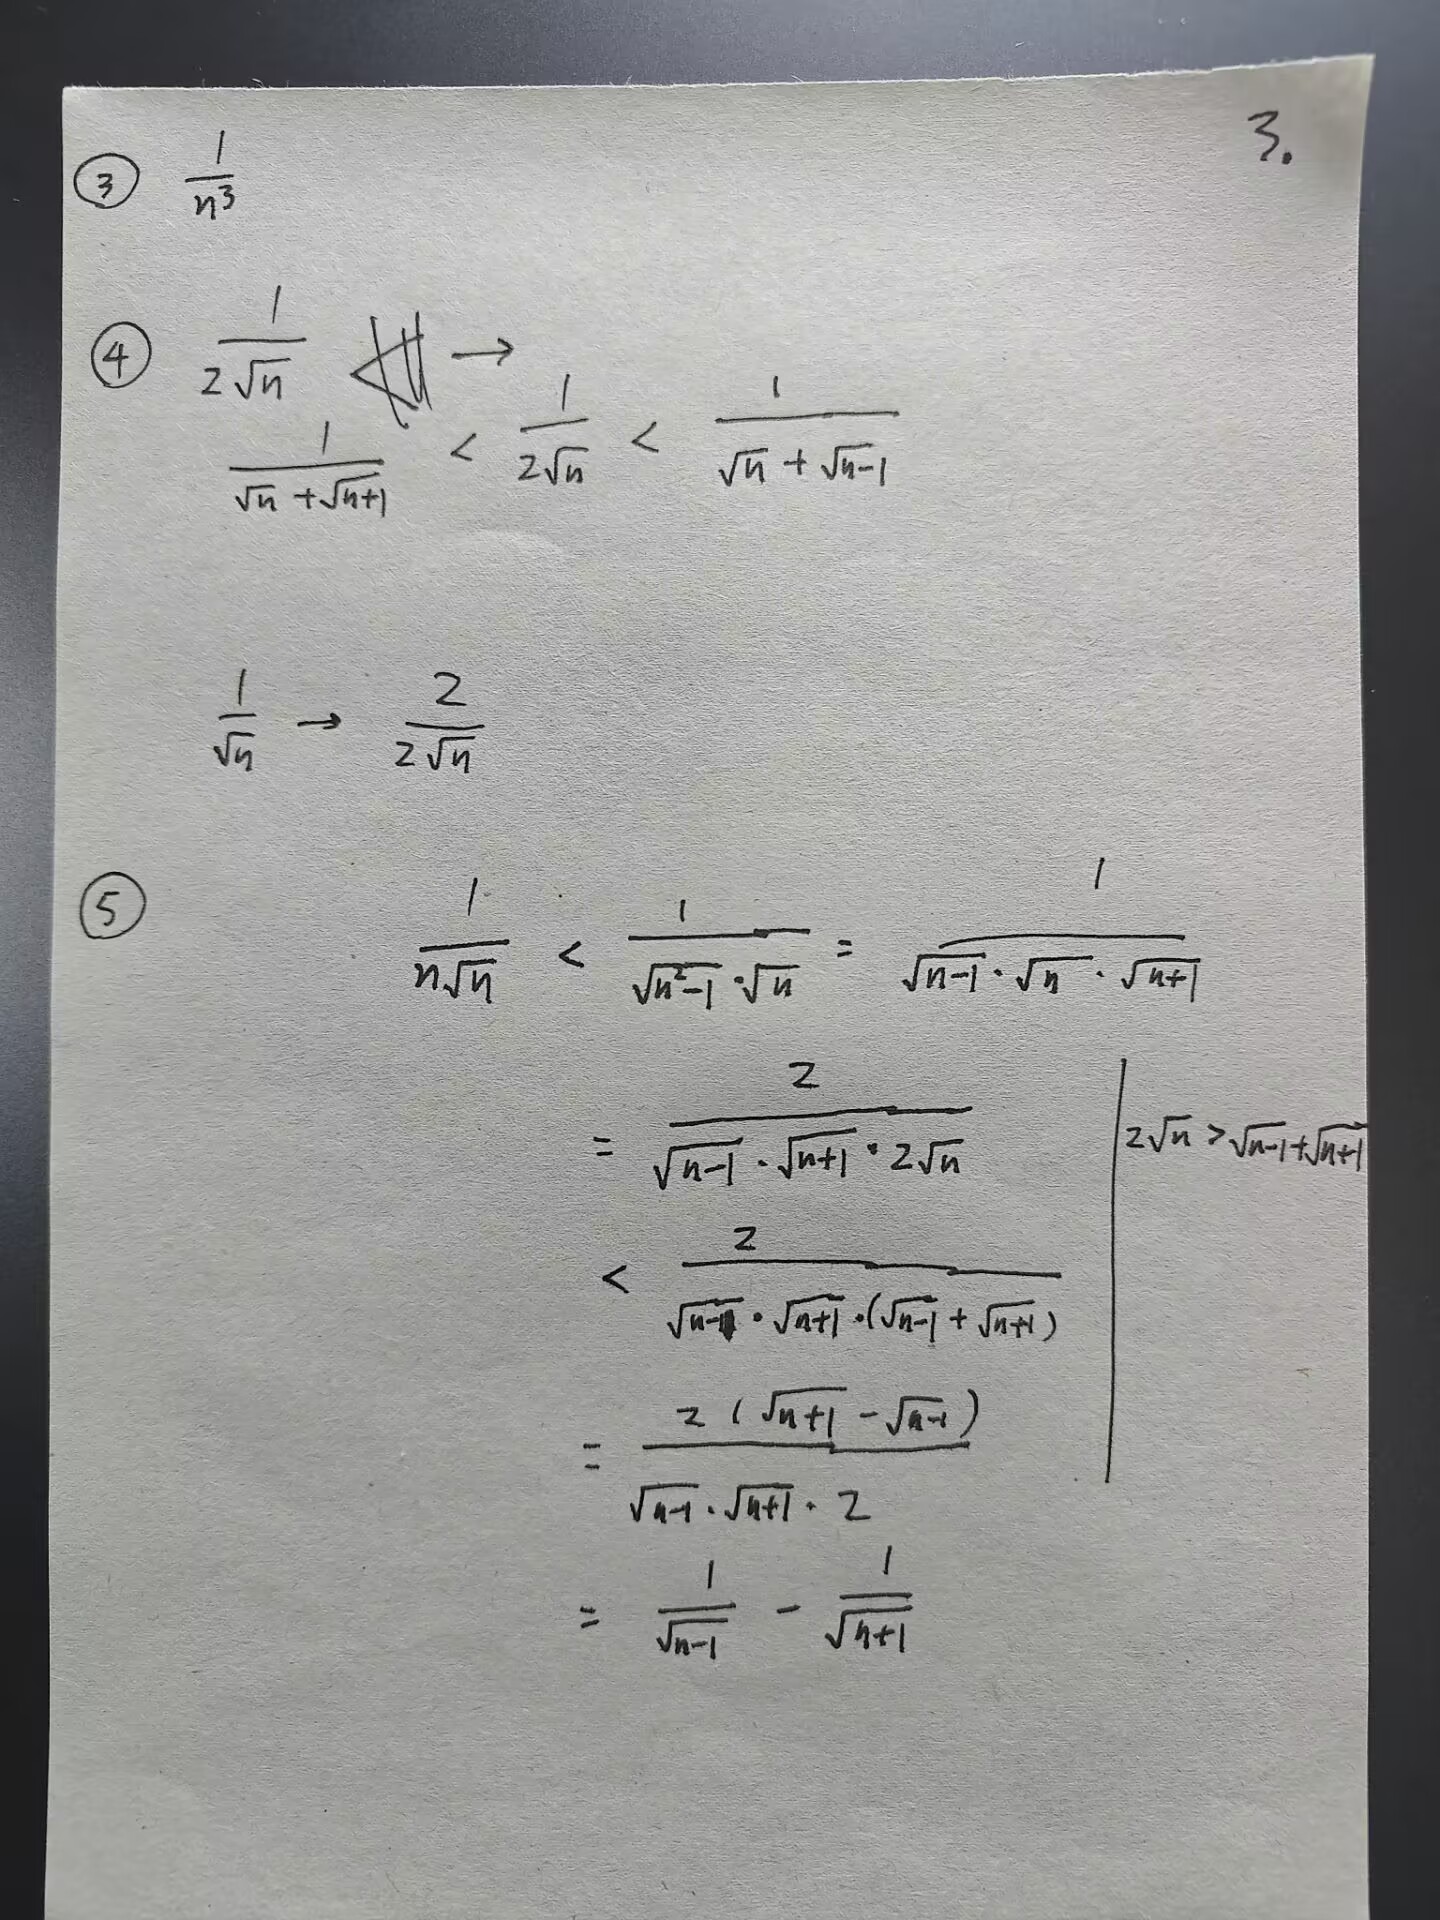 3.
③ 1/n³
④ 1/(2√n) →
1/(√n + √(n+1)) < 1/(2√n) < 1/(√n + √(n-1))
1/√n → 2/(2√n)
⑤ 1/(n√n) < 1/(√(n²-1)·√n) = 1/(√(n-1)·√n·√(n+1))
= 2/(√(n-1)·√(n+1)·2√n)
2√n > √(n-1)+√(n+1)
< 2/(√(n-1)·√(n+1)·(√(n-1)+√(n+1)))
= 2(√(n+1)-√(n-1))/(√(n-1)·√(n+1)·2)
= 1/√(n-1) - 1/√(n+1)